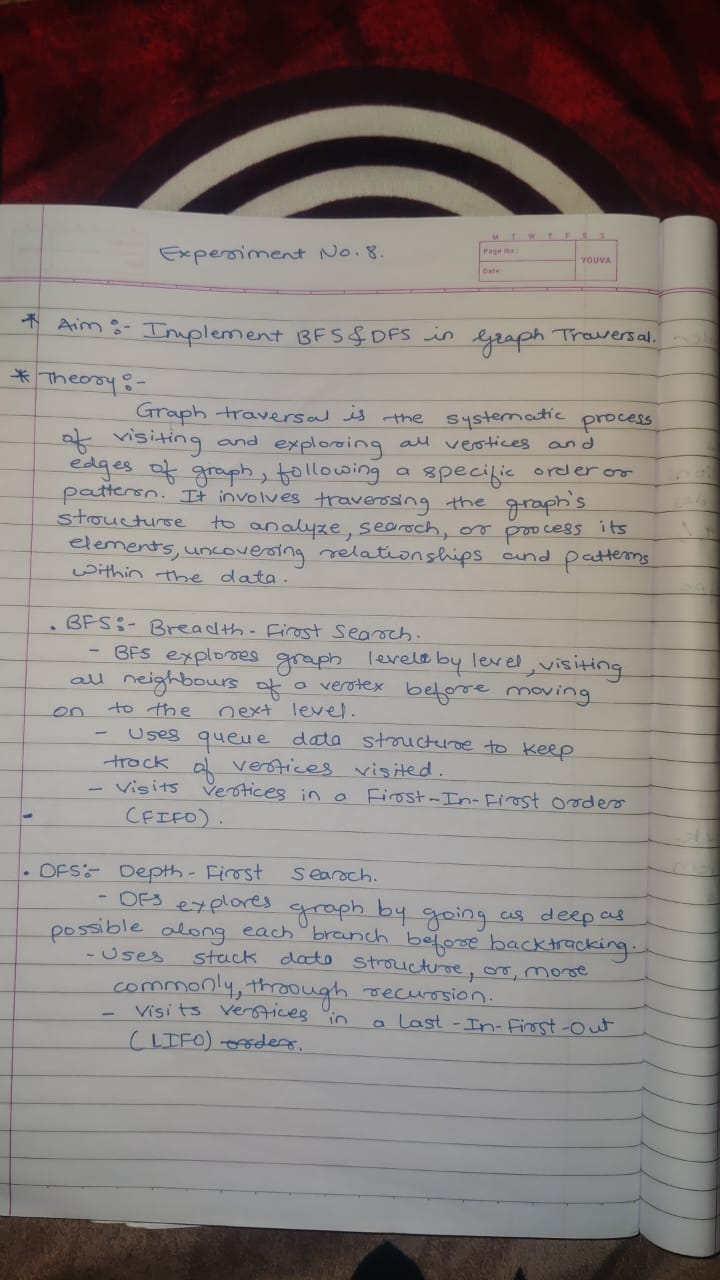 Experiment No. 8.
M T W T F S S
Page No.:
Date:
YOUVA
* Aim :- Implement BFS & DFS in Graph Traversal.
* Theory :-
Graph traversal is the systematic process
of visiting and exploring all vertices and
edges of graph, following a specific order or
pattern. It involves traversing the graph's
structure to analyze, search, or process its
elements, uncovering relationships and patterns
within the data.
. BFS :- Breadth - First Search.
- BFS explores graph level by level, visiting
all neighbours of a vertex before moving
on to the next level.
- Uses queue data structure to keep
track of vertices visited.
- Visits vertices in a First-In-First order
(FIFO).
. DFS :- Depth - First Search.
- DFS explores graph by going as deep as
possible along each branch before backtracking.
- Uses stack data structure, or, more
commonly, through recursion.
- Visits vertices in a Last-In-First-Out
(LIFO) order.